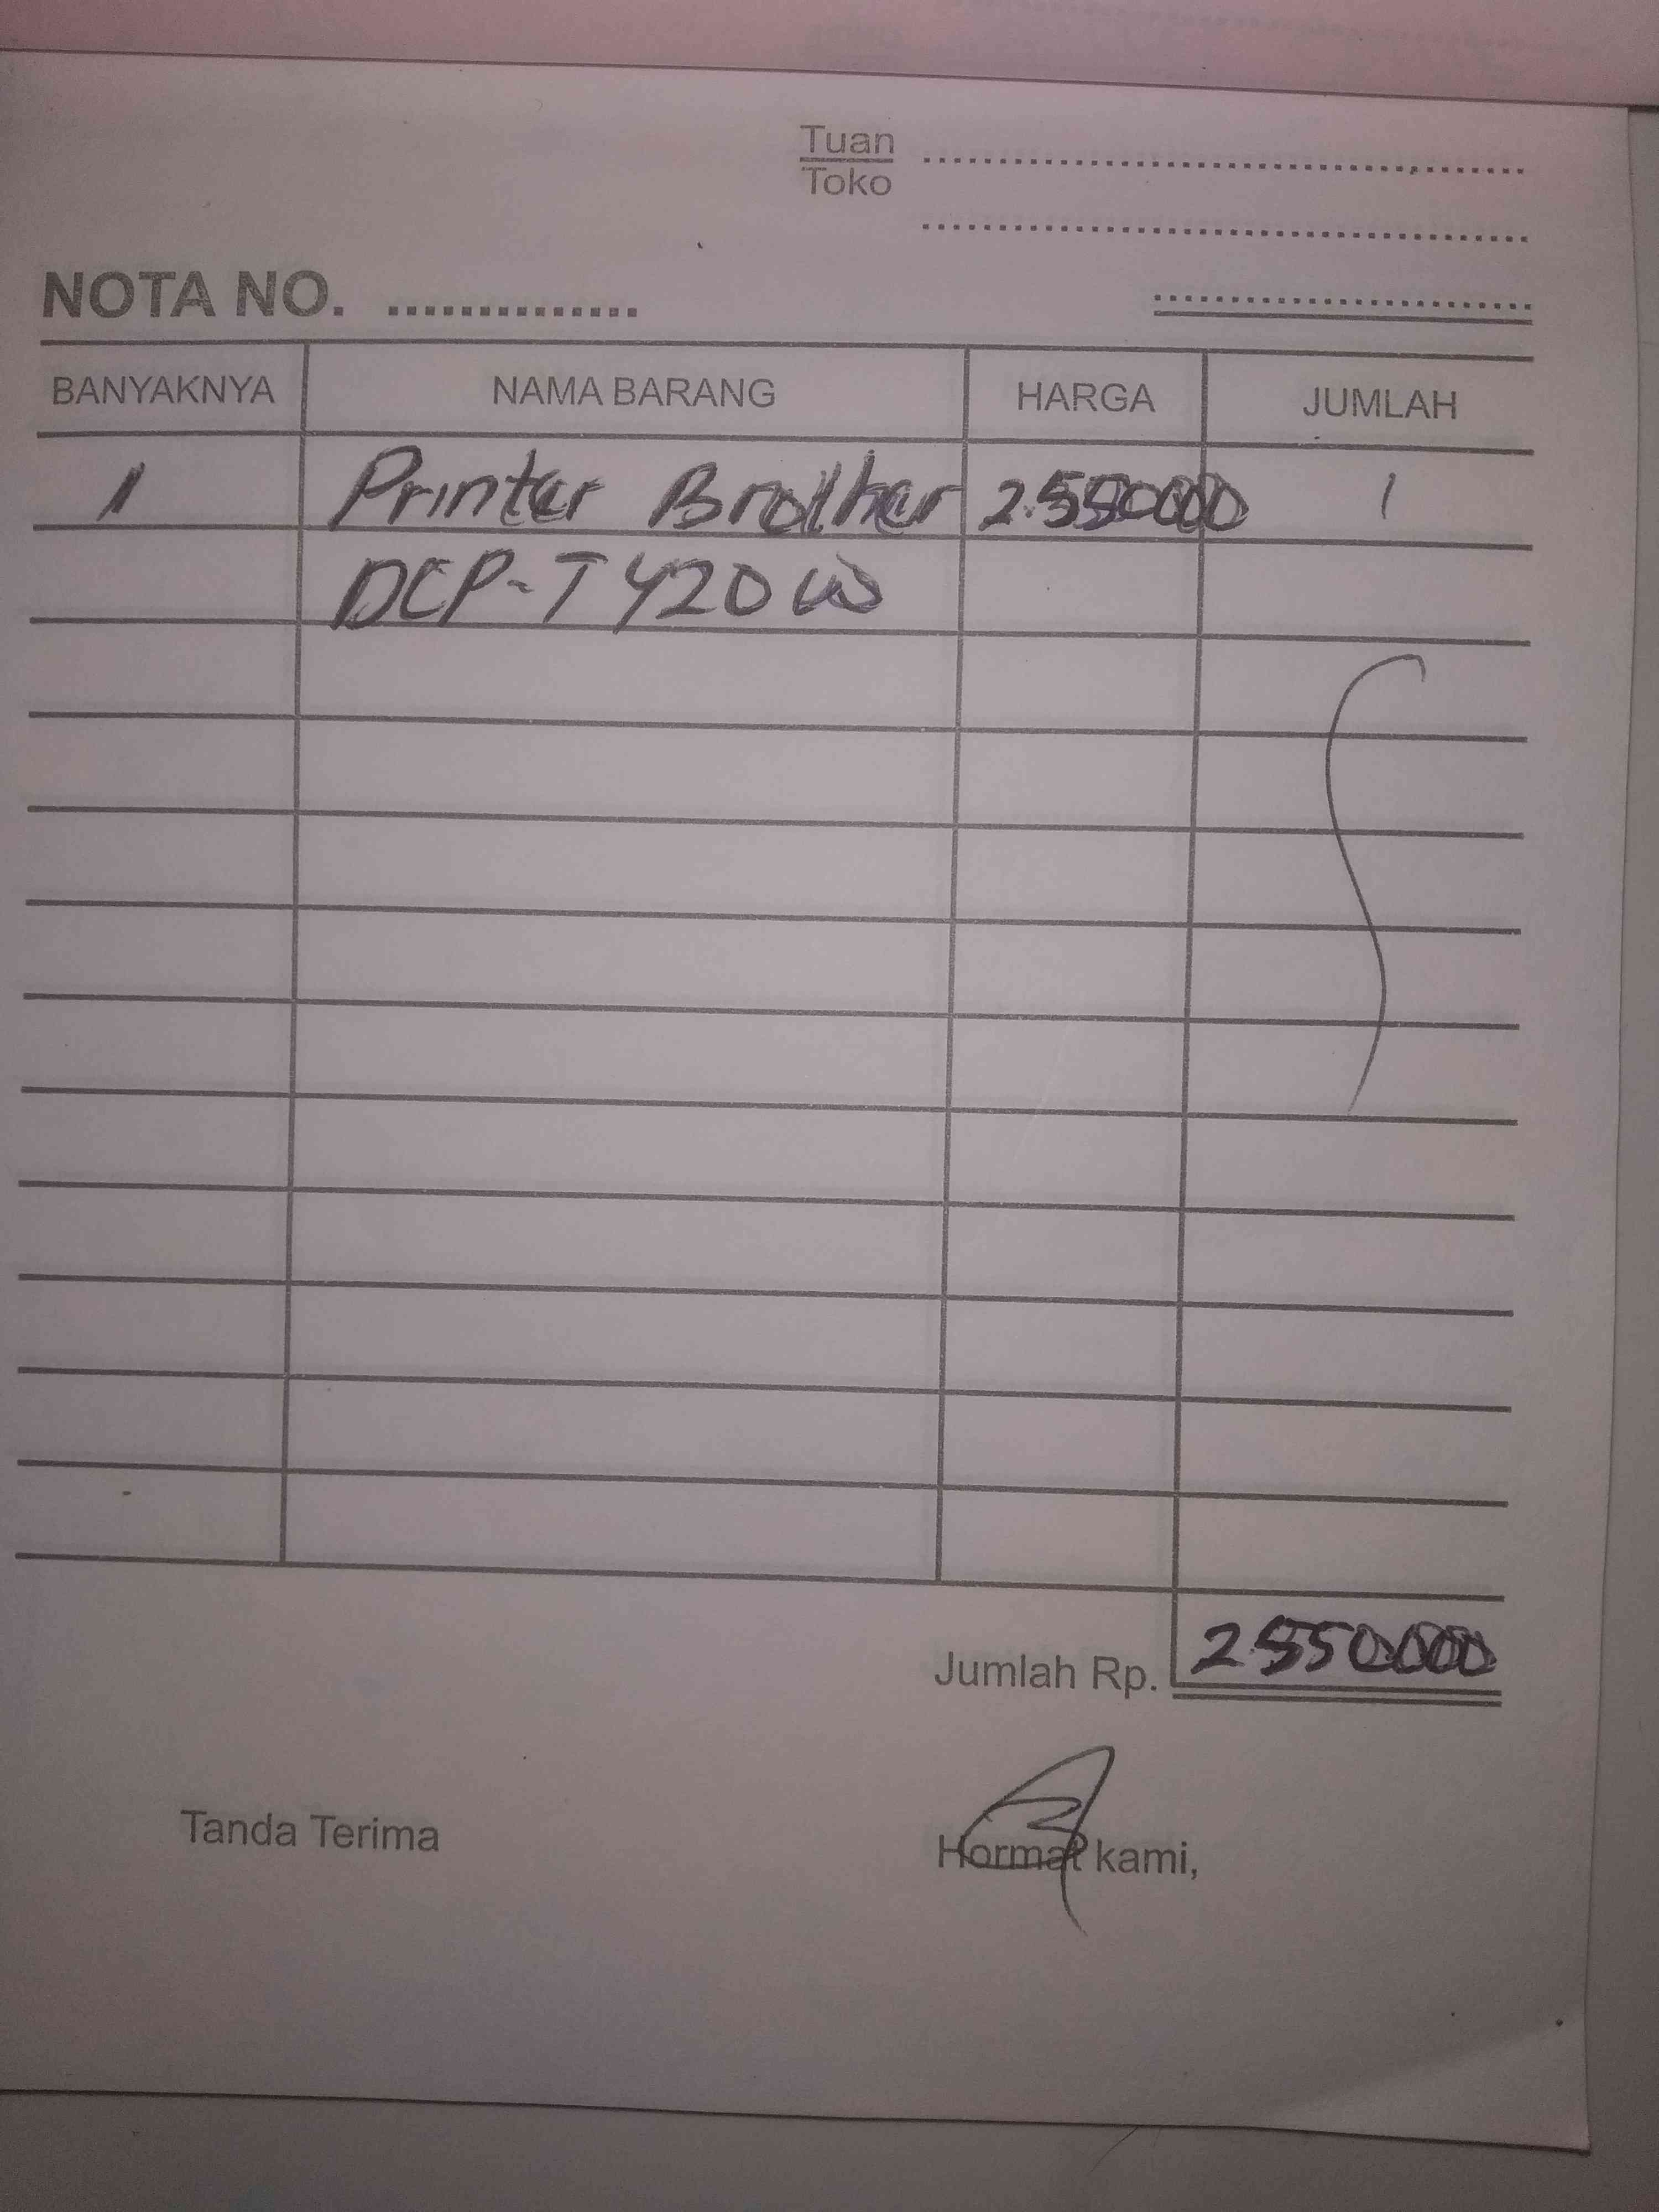 Tuan
Toko
NOTA NO. ...............
BANYAKNYA NAMA BARANG HARGA JUMLAH
1 Printer Brother 2.550000 1
DCP-T420W
Jumlah Rp. 2.550.000
Tanda Terima Hormat kami,